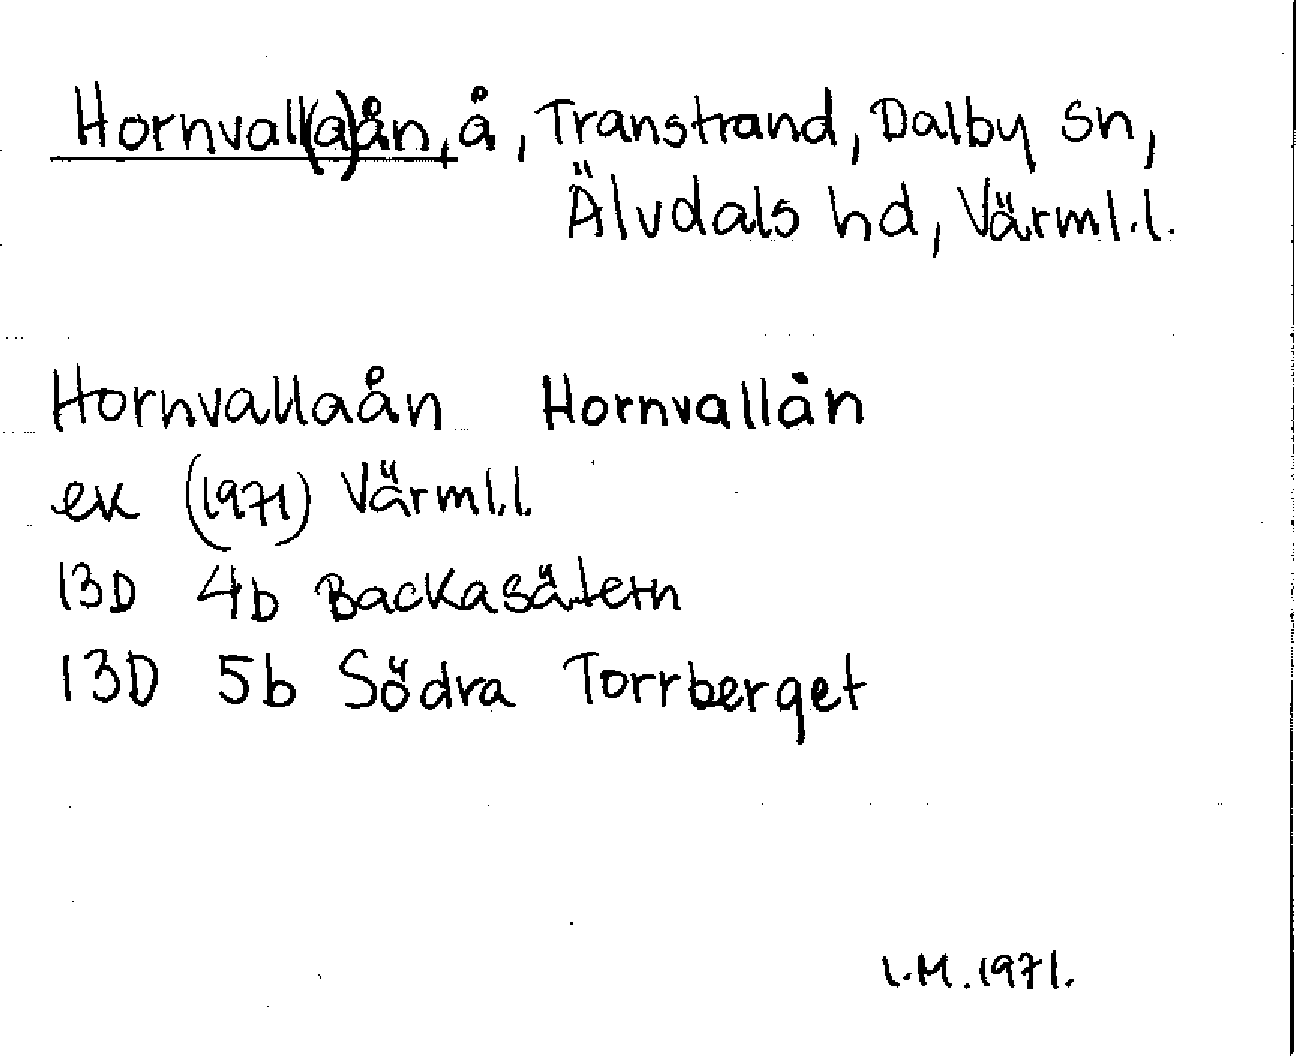 Hornvall(a)ån, å, Transtrand, Dalby sn,
Älvdals hd, Värml.l.
Hornvallaån Hornvallån
ek (1971) Värml.l.
13D 4b Backasätern
13D 5b Södra Torrberget
L.M. 1971.